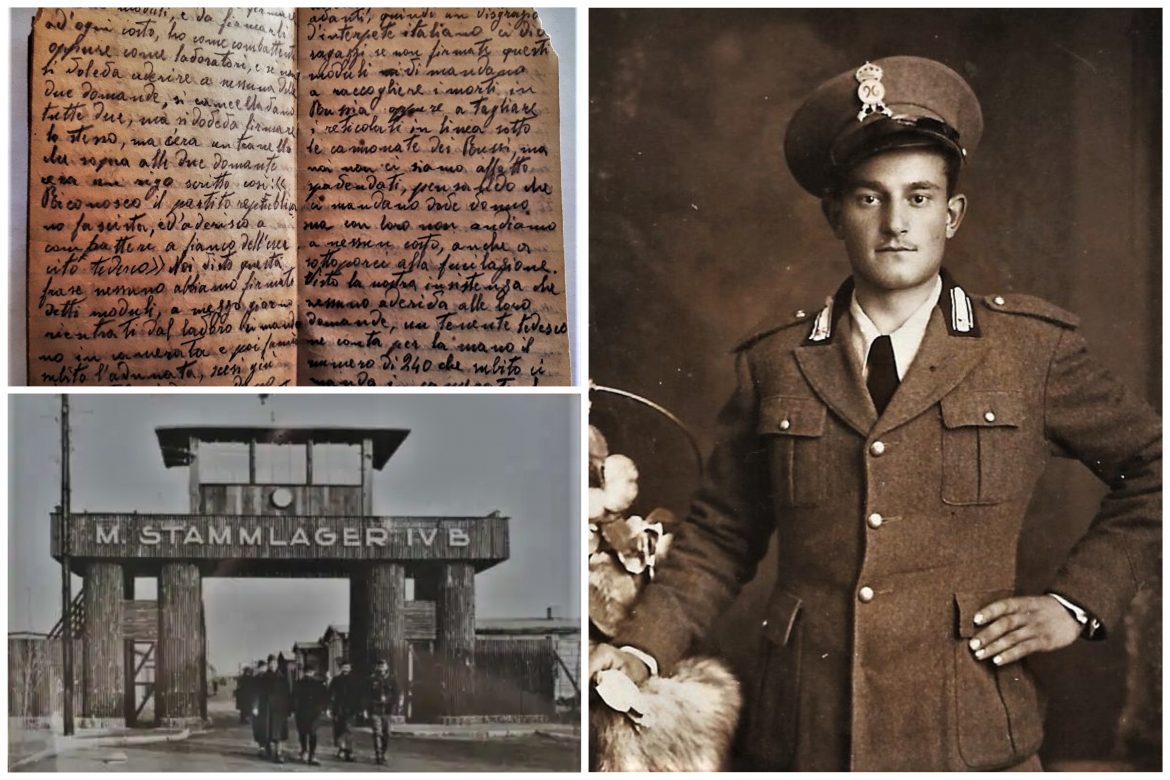 moduli, e da fiancarli
ad'ogni costo, ho come combattente
oppure come ladoratori, e se non
si doleda aderire a nessuna delle
due domande, si cancelladano
tutte due, ma si dodeda firmare
lo stesso, ma c'era un tranello
che sopra alle due domante
cera un rigo scritto così <<
Riconosco il partito repubblica
no fascista, ed'aderisco a
compattere a fianco dell'eser
cito tedesco>> Noi visto questa
frase nessuno abbiamo firmato
detti moduli, a mezzo giorno
rientrati dal lavoro manda
no in camerata e poi fanno
subito l'adunata, scesi giù
adanti, quindi un disgrazia
d'interpete italiano ci dice
ragazzi se non firmate questi
moduli vi mandano
a raccogliere i morti in
Russia oppure a tagliare
i reticolati in linea sotto
le cannonate dei Russi, ma
noi non ci siamo affatto
spadendati, pensando che
ci mandano dode donno
ma con loro non andiamo
a nessun costo, anche a
sottoporci alla fucilazione.
Visto la nostra insistenza che
nessuno aderida alle loro
domande, un tenente tedesco
ne conta per la mano il
numero di 240 che subito ci
manda in
M. STAMMLAGER IV B